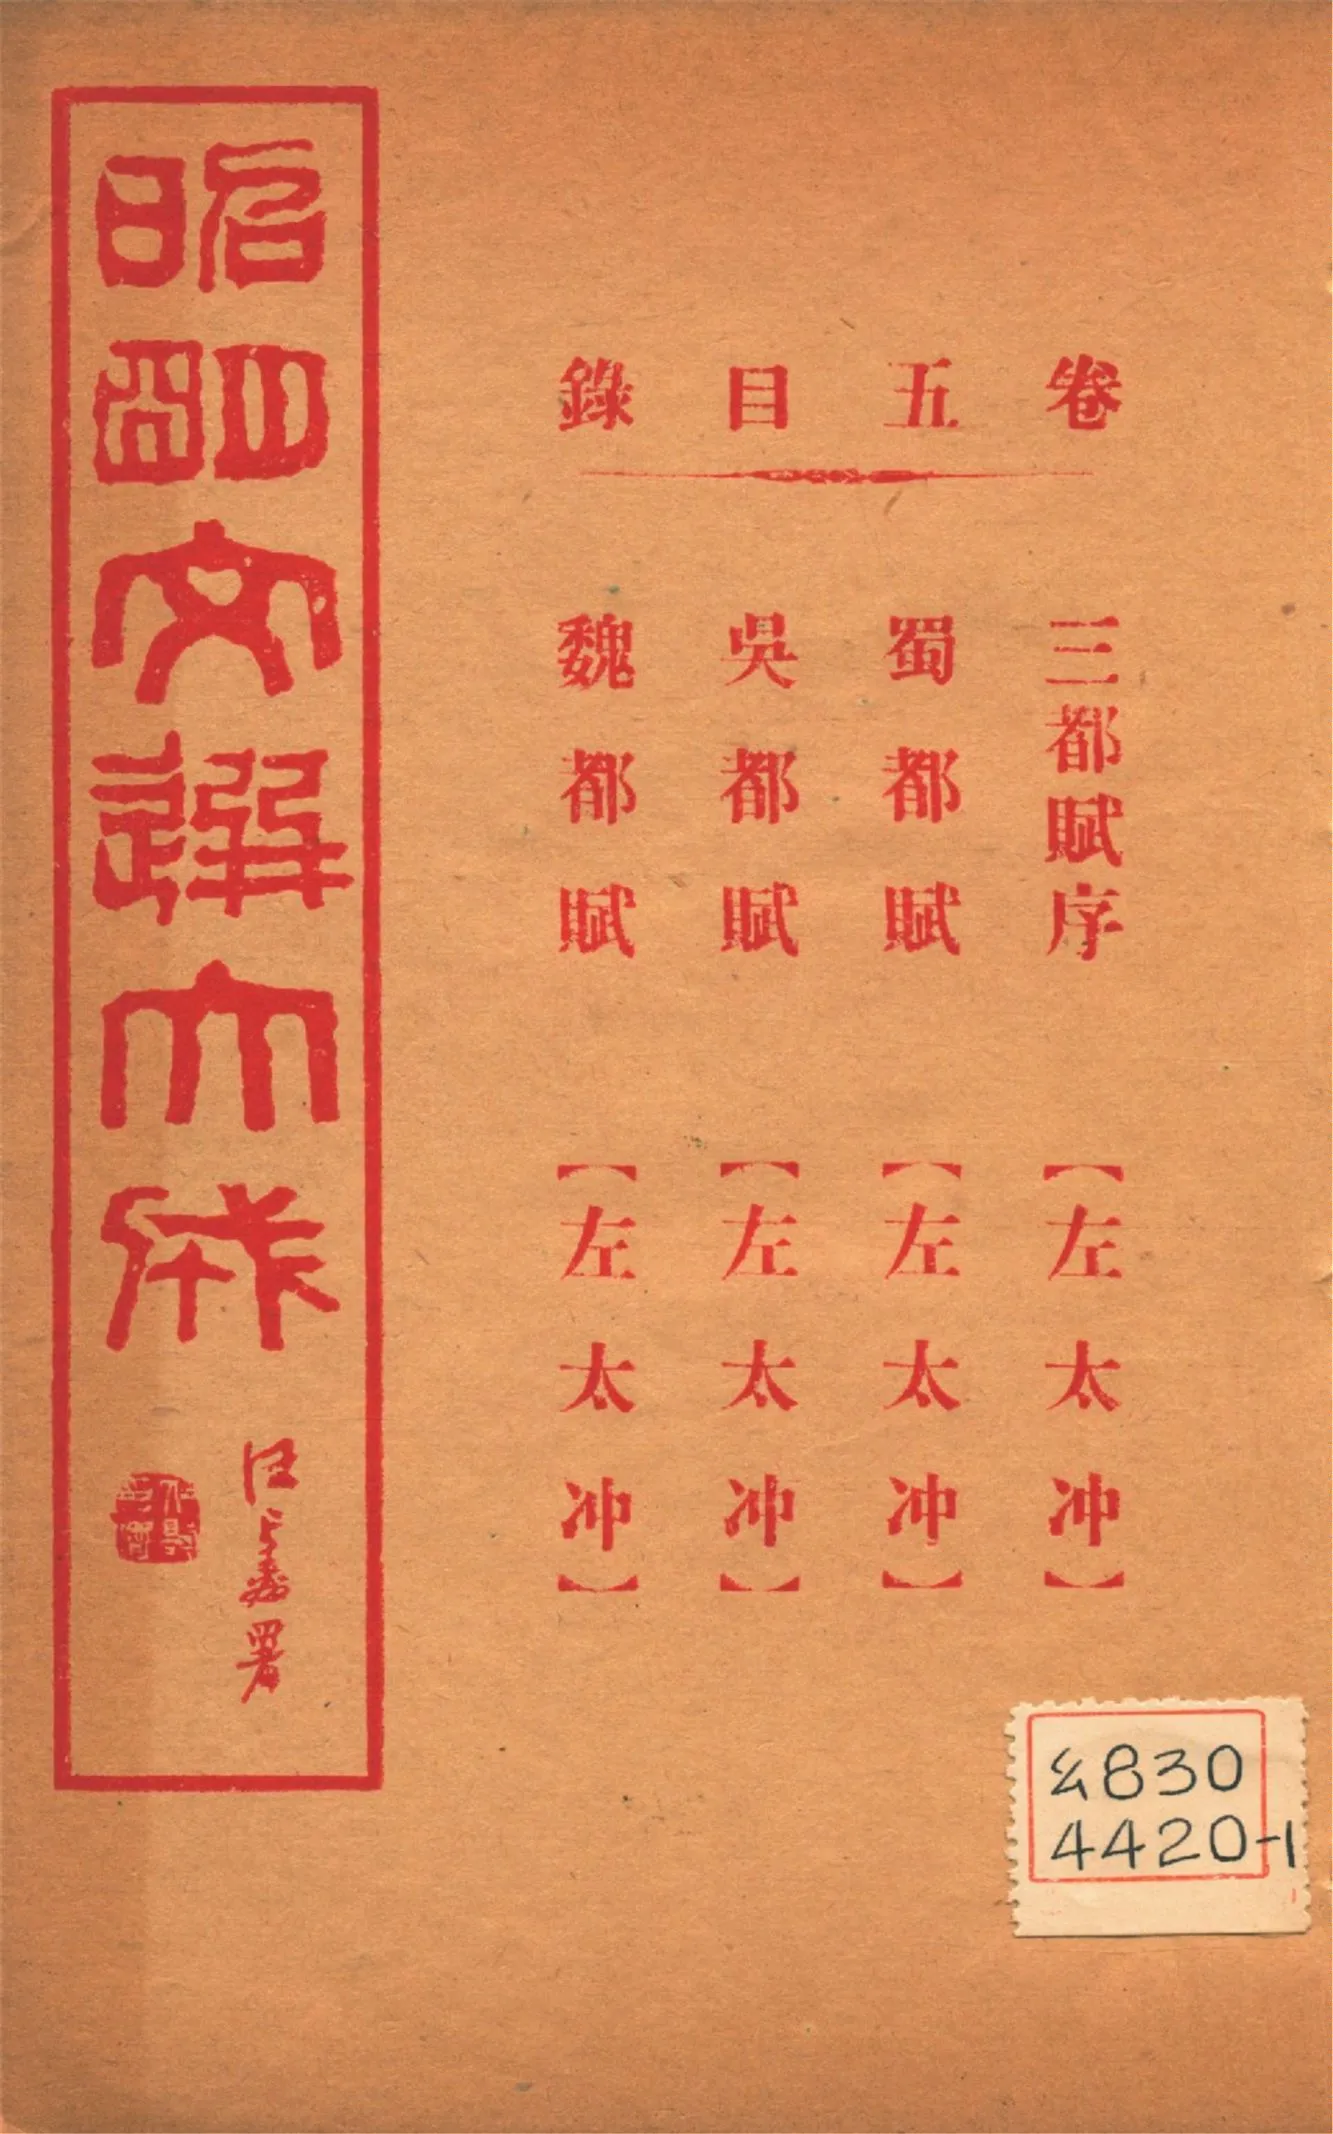 卷五目錄
三都賦序【左太冲】
蜀都賦【左太冲】
吳都賦【左太冲】
魏都賦【左太冲】
昭朙文選大成
汪署
830
4420-1